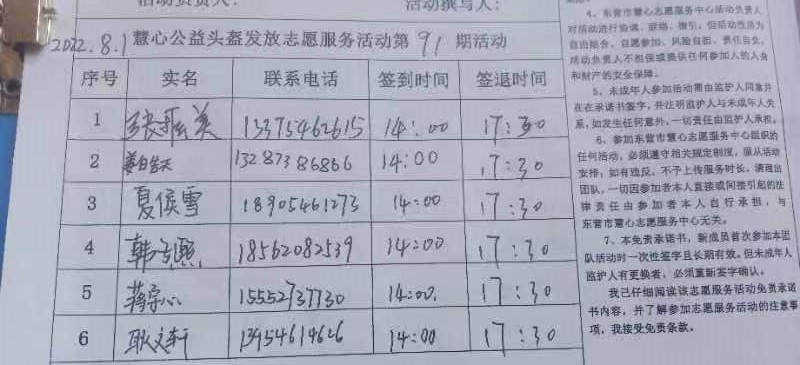 活动负责人:
活动撰写人:
2022.8.1 慧心公益头盔发放志愿服务活动第91期活动
序号 实名 联系电话 签到时间 签退时间
1 张振美 13375462615 14:00 17:30
2 13287386866 14:00 17:30
3 夏侯雪 18905461273 14:00 17:30
4 韩 熙 18562082539 14:00 17:30
5 蒋 心 15552737730 14:00. 17:30
6 耿文轩 13954614626 14:00 17:30
4、东营市慧心志愿服务中心活动负责人
对活动进行协调、联络、指引,但活动性质为
自由结合、自愿参加、风险自担、责任自负,
活动负责人不担保或提供任何参加人的人身
和财产的安全保障。
5、未成年人参加活动需由监护人同意并
在在承诺书签字,并注明监护人与未成年人关
系,如发生任何意外,一切责任由监护人承担。
6、参加东营市慧心志愿服务中心组织的
任何活动,必须遵守相关规定制度,服从活动
安排;如有违反,不予上传服务时长,清理出
团队,一切因参加者本人直接或间接引起的法
律责任由参加者本人自行承担,与
东营市慧心志愿服务中心无关。
7、本免责承诺书,新成员首次参加本团
队活动时一次性签字且长期有效。但未成年人
监护人有更换者,必须重新签字确认。
我已仔细阅读该志愿服务活动免责承诺
书内容,并了解参加志愿服务活动的注意事
项,我接受免责条款。